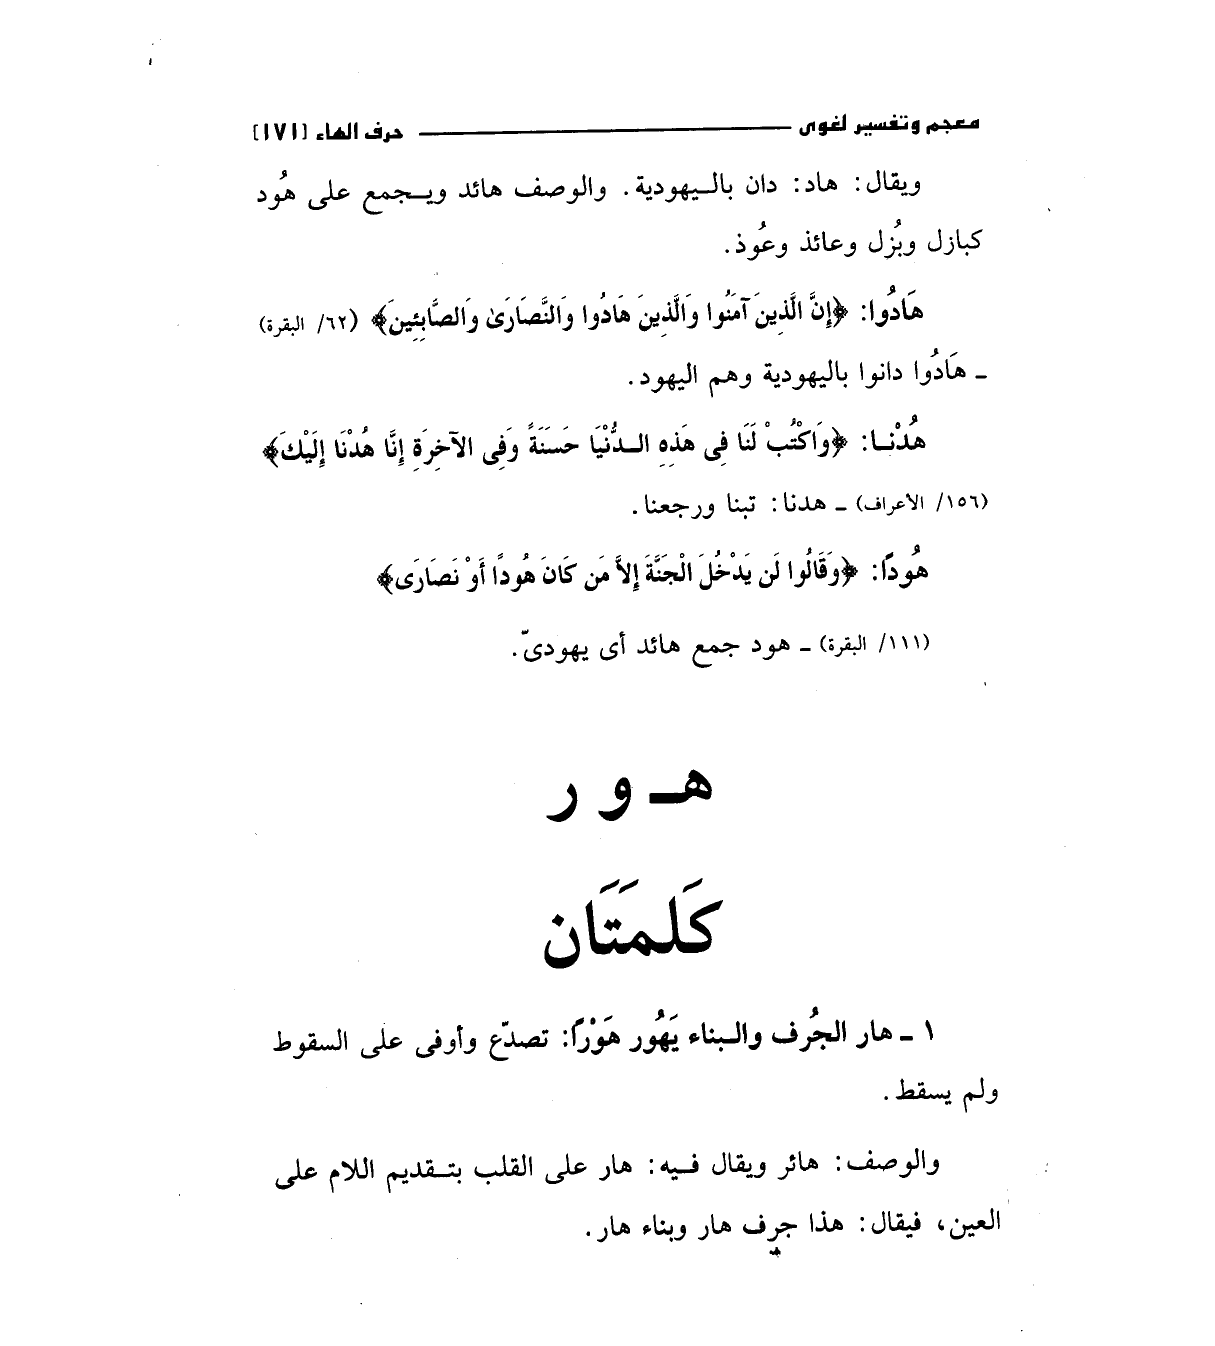 معجم وتفسير لغوى — حرف الهاء [١٧١]
ويقال: هاد: دان باليهودية. والوصف هائد ويجمع على هُود
كبازل وبُزل وعائذ وعُوذ.
هَادُوا: ﴿إِنَّ الَّذِينَ آمَنُوا وَالَّذِينَ هَادُوا وَالنَّصَارَىٰ وَالصَّابِئِينَ﴾ (٦٢/ البقرة)
ـ هَادُوا دانوا باليهودية وهم اليهود.
هُدْنـا: ﴿وَاكْتُبْ لَنَا فِى هَذِهِ الـدُّنْيَا حَسَنَةً وَفِى الآخِرَةِ إِنَّا هُدْنَا إِلَيْكَ﴾
(١٥٦/ الأعراف) ـ هدنا: تبنا ورجعنا.
هُودًا: ﴿وَقَالُوا لَن يَدْخُلَ الْجَنَّةَ إِلاَّ مَن كَانَ هُودًا أَوْ نَصَارَى﴾
(١١١/ البقرة) ـ هود جمع هائد أى يهودىّ.
هـ و ر
كَلمَتَان
١ ـ هار الجُرف والـبناء يَهُور هَوْرًا: تصدّع وأوفى على السقوط
ولم يسقط.
والوصف: هائر ويقال فـيه: هار على القلب بتـقديم اللام على
العين، فيقال: هذا جرف هار وبناء هار.